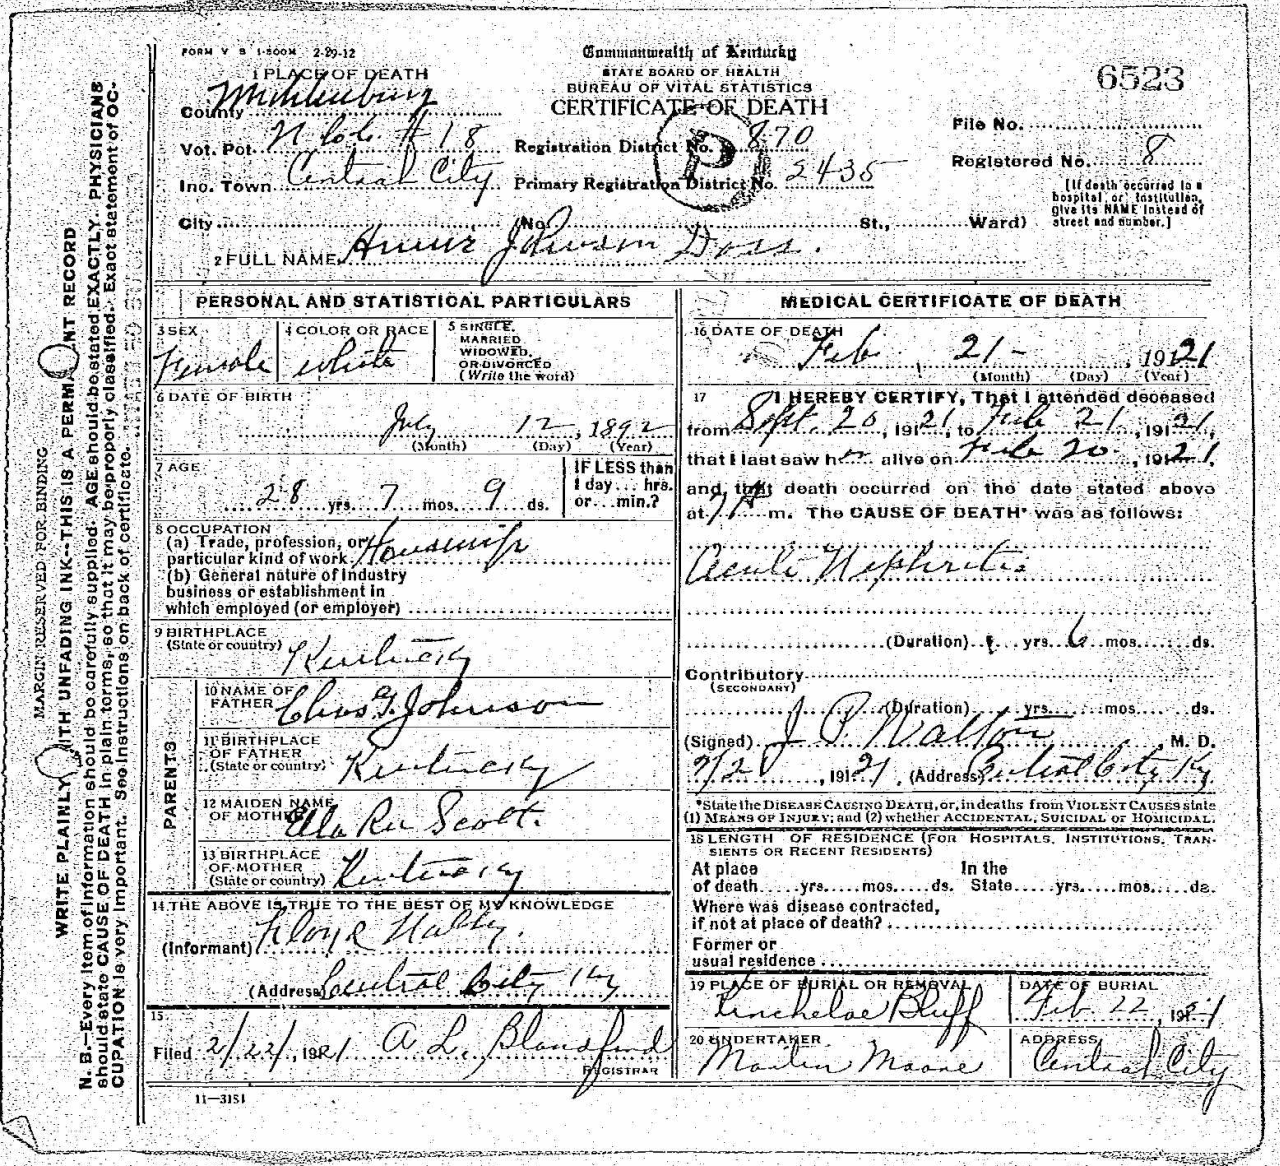 FORM V S 1-500M 2-29-12
Commonwealth of Kentucky
STATE BOARD OF HEALTH
BUREAU OF VITAL STATISTICS
CERTIFICATE OF DEATH
6523
1 PLACE OF DEATH
County Muhlenburg
Vot. Pct. # 18
Registration District No. 870
File No.
Inc. Town Central City
Primary Registration District No. 2435
Registered No. 8
City (No. St., Ward)
[If death occurred in a hospital or institution, give its NAME instead of street and number.]
2 FULL NAME Johnson Doss.
PERSONAL AND STATISTICAL PARTICULARS
3 SEX
Female
4 COLOR OR RACE
white
5 SINGLE,
MARRIED
WIDOWED,
OR DIVORCED
(Write the word)
6 DATE OF BIRTH
July 12, 1892
(Month) (Day) (Year)
7 AGE
28 yrs. 7 mos. 9 ds.
IF LESS than
1 day... hrs.
or...min.?
8 OCCUPATION
(a) Trade, profession, or
particular kind of work Housewife
(b) General nature of Industry
business or establishment in
which employed (or employer)
9 BIRTHPLACE
(State or country) Kentucky
PARENTS
10 NAME OF
FATHER Chas G. Johnson
11 BIRTHPLACE
OF FATHER
(State or country) Kentucky
12 MAIDEN NAME
OF MOTHER Scott.
13 BIRTHPLACE
OF MOTHER
(State or country) Kentucky
14 THE ABOVE IS TRUE TO THE BEST OF MY KNOWLEDGE
(Informant)
(Address) Central City Ky
15
Filed 2/22, 1921 A L. Blandford
REGISTRAR
11-3151
MEDICAL CERTIFICATE OF DEATH
16 DATE OF DEATH
Feb 21-, 1921
(Month) (Day) (Year)
17 I HEREBY CERTIFY, That I attended deceased
from Sept. 20, 1921, to Feb 21, 1921,
that I last saw her alive on Feb 20, 1921,
and that death occurred on the date stated above
at 7 A m. The CAUSE OF DEATH* was as follows:
Acute Nephritis
(Duration) yrs. 6 mos. ds.
Contributory
(SECONDARY)
(Duration) yrs. mos. ds.
(Signed) J P. Walton M. D.
, 1921. (Address) Central City Ky
*State the DISEASE CAUSING DEATH, or, in deaths from VIOLENT CAUSES state
(1) MEANS OF INJURY; and (2) whether ACCIDENTAL, SUICIDAL OR HOMICIDAL.
18 LENGTH OF RESIDENCE (FOR HOSPITALS, INSTITUTIONS, TRAN-
SIENTS OR RECENT RESIDENTS)
At place In the
of death yrs. mos. ds. State yrs. mos. ds.
Where was disease contracted,
if not at place of death?
Former or
usual residence
19 PLACE OF BURIAL OR REMOVAL
Kincheloe Bluff
DATE OF BURIAL
Feb 22, 1921
20 UNDERTAKER
Martin Moore
ADDRESS
Central City
MARGIN RESERVED FOR BINDING
WRITE PLAINLY WITH UNFADING INK--THIS IS A PERMANENT RECORD
N. B.—Every item of information should be carefully supplied. AGE should be stated EXACTLY. PHYSICIANS
should state CAUSE OF DEATH in plain terms, so that it may be properly classified. Exact statement of OC-
CUPATION is very important. See instructions on back of certificate.